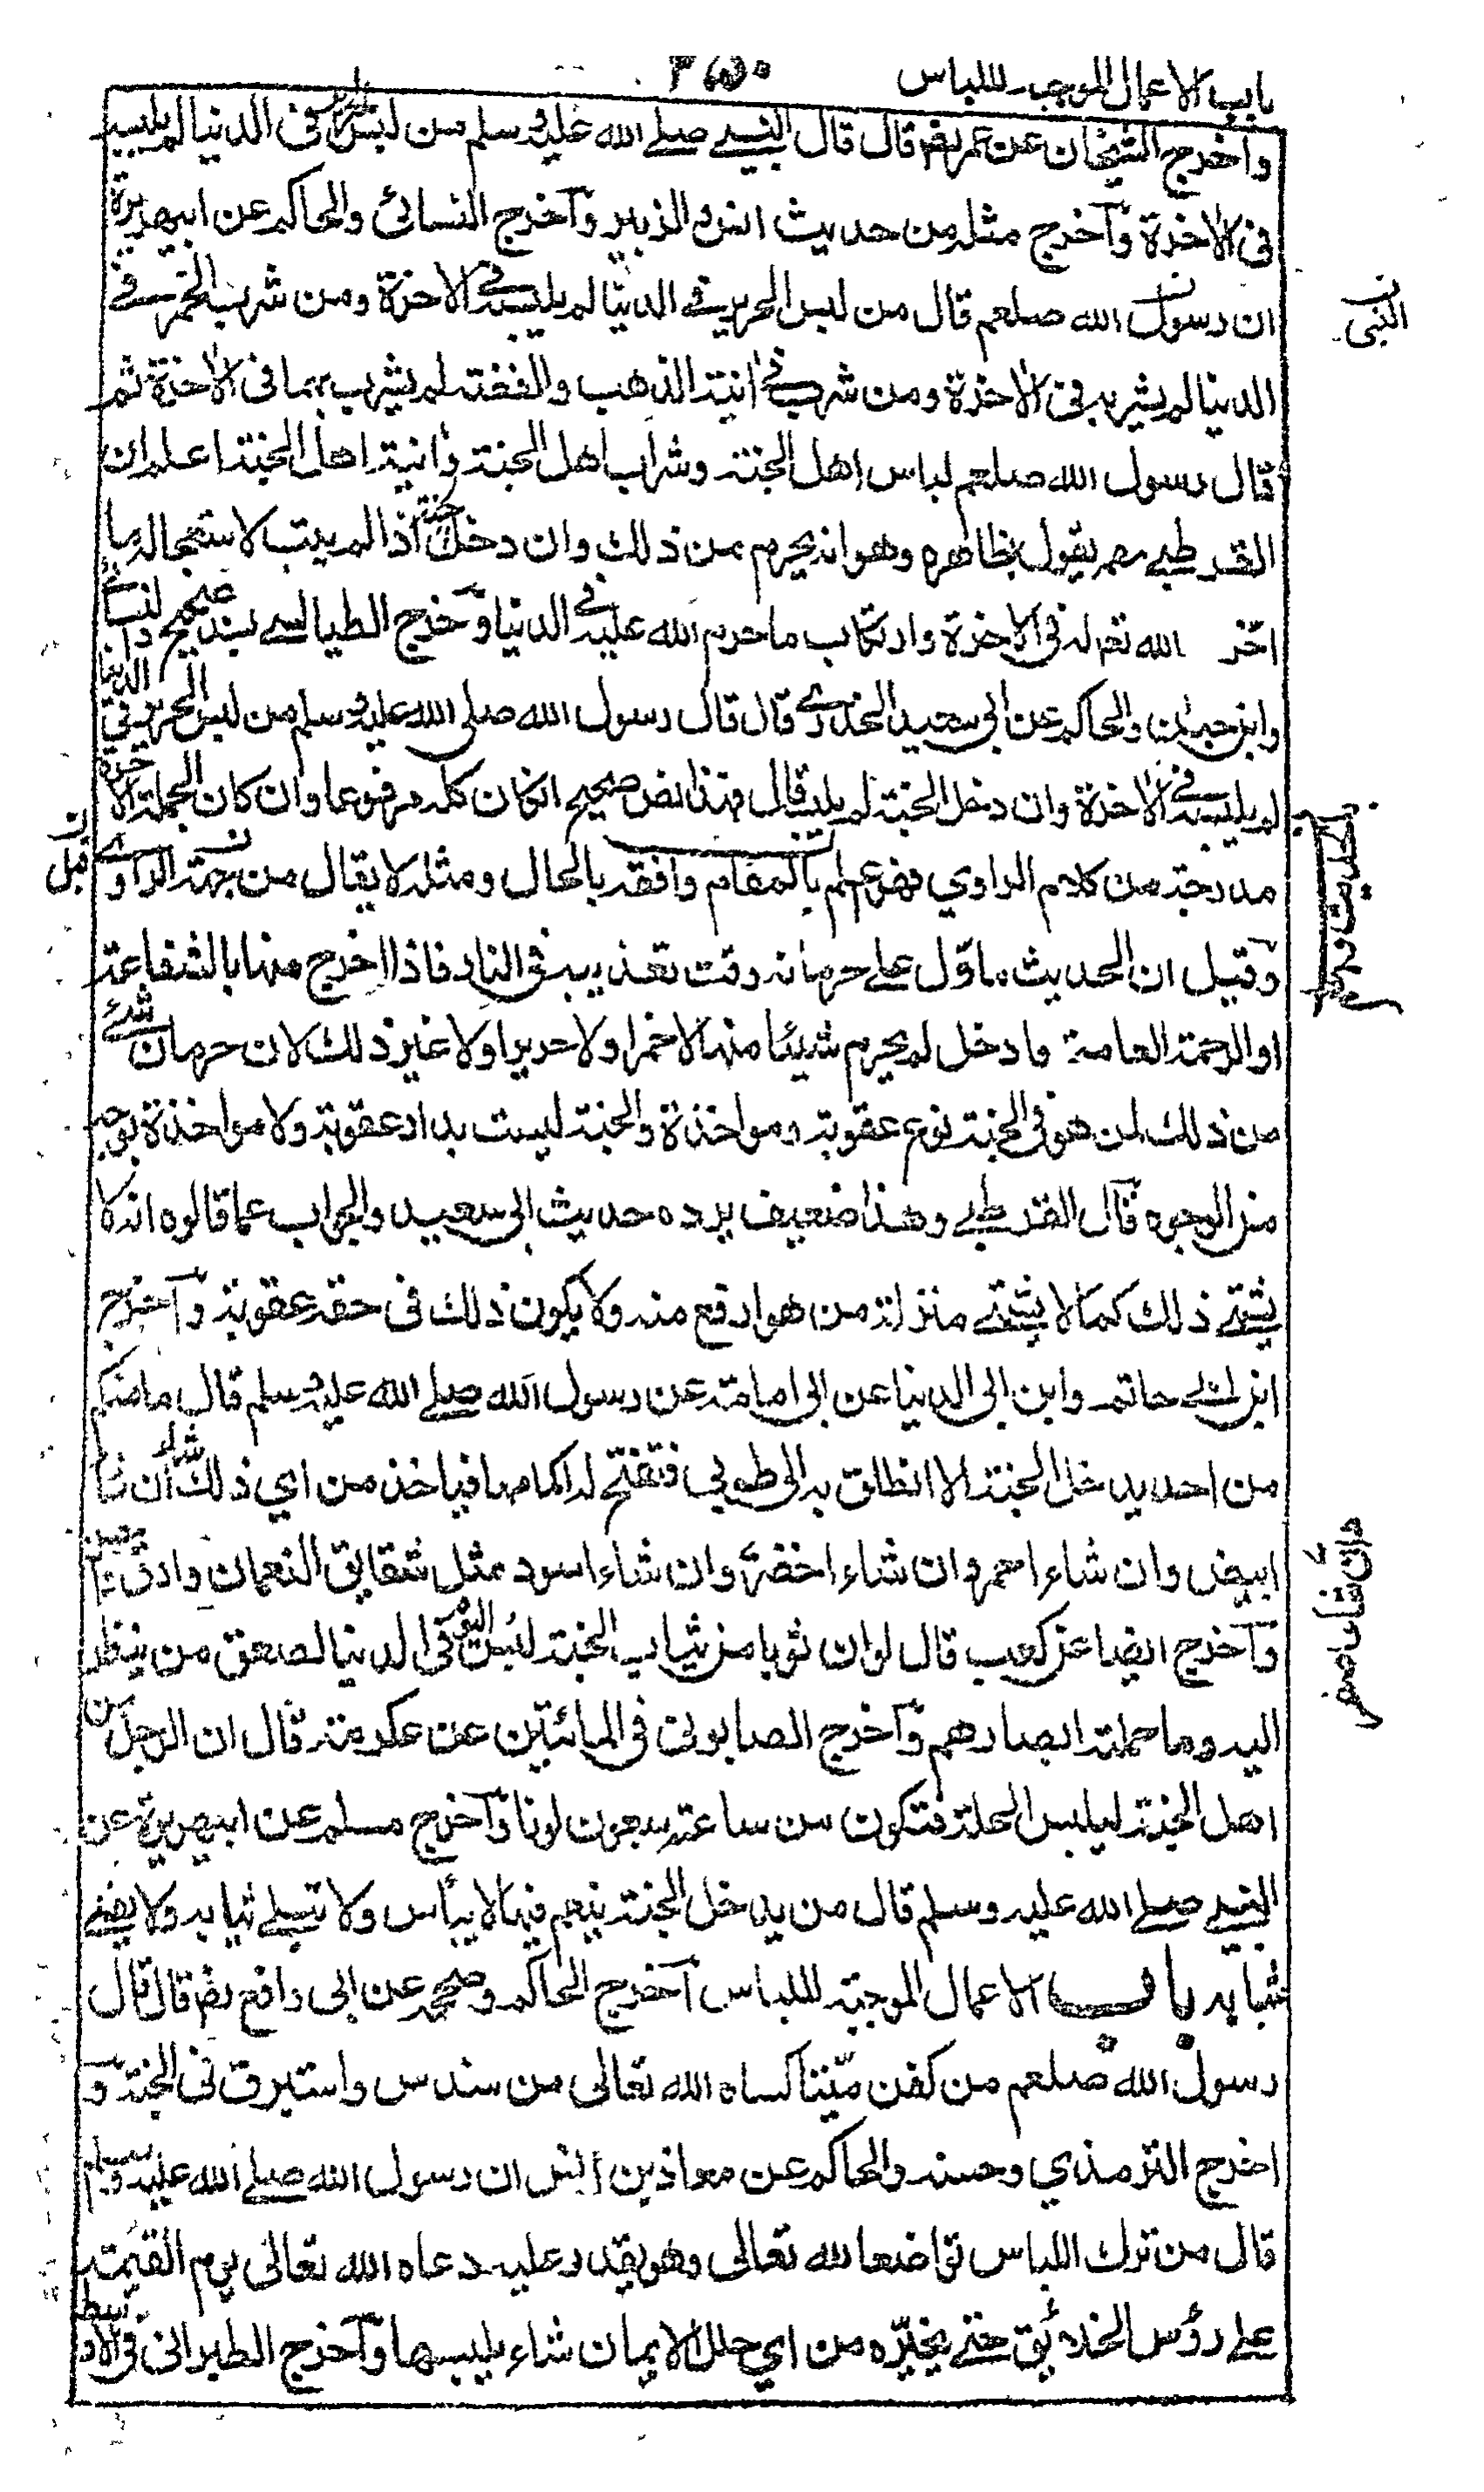 باب الاعمال الموجبه للباس
۳۵۰
واخرج الشيخان عن عمر رض قال قال النبي صلى الله عليه وسلم من لبس الحرير في الدنيا لم يلبسه
في الاخرة وآخرج مثله من حديث انس والزبير وآخرج النسائي والحاكم عن ابيهريرة
ان رسول الله صلعم قال من لبس الحرير في الدنيا لم يلبسه في الاخرة ومن شرب الخمر في
الدنيا لم يشربه في الاخرة ومن شرب في انية الذهب والفضة لم يشرب بهما في الاخرة ثم
قال رسول الله صلعم لباس اهل الجنة وشراب اهل الجنة وانية اهل الجنة اعلم ان
القرطبي مم يقول بظاهره وهو انه يحرم من ذلك وان دخل الجنة اذا لم يتب لاستعجاله ما
اخر الله تع له في الاخرة وارتكاب ما حرم الله عليه في الدنيا وآخرج الطيالسي بسند صحيح والنسائي
وابن حبان والحاكم عن ابي سعيد الخدري قال قال رسول الله صلى الله عليه وسلم من لبس الحرير في الدنيا
لم يلبسه في الاخرة وان دخل الجنة لم يلبسه قال فهذا نص صحيح ان كان كله مرفوعا وان كان الجملة الاخرة
مدرجة من كلام الراوي فهو اعلم بالمقام وافقه بالحال ومثله لا يقال من جهة الراوي
وقيل ان الحديث ماوّل على حرمانه وقت تعذيبه في النار فاذا اخرج منها بالشفاعة
او الرحمة العامة وادخل لم يحرم شيئا منها لا خمرا ولا حريرا ولا غير ذلك لان حرمان شئ
من ذلك لمن هو في الجنة نوع عقوبة ومواخذة والجنة ليست بدار عقوبة ولا مواخذة بوجه
من الوجوه قال القرطبي وهذا ضعيف يرده حديث ابي سعيد والجواب عما قالوه انه لا
يشتهي ذلك كما لا يشتهي منزلة من هو ارفع منه ولا يكون ذلك في حقه عقوبة وآخرج
ابن ابي حاتم وابن ابي الدنيا عن ابي امامة عن رسول الله صلى الله عليه وسلم قال ما منكم
من احد يدخل الجنة الا انطلق به الى طوبى فتفتح له اكمامها فياخذ من اي ذلك شاء ان شاء
ابيض وان شاء احمر وان شاء اخضر وان شاء اسود مثل شقايق النعمان وارق
وآخرج ايضا عن كعب قال لو ان ثوبا من ثياب الجنة لبس اليوم في الدنيا لصعق من ينظر
اليه وما حملته ابصارهم وآخرج الصابوني في المائتين عن عكرمة قال ان الرجل من
اهل الجنة ليلبس الحلة فتكون من ساعته سبعون لونا وآخرج مسلم عن ابيهريرة عن
النبي صلى الله عليه وسلم قال من يدخل الجنة ينعم فيها لا يبأس ولا تبلى ثيابه ولا يفنى
شبابه باب الاعمال الموجبة للباس آخرج الحاكم وصححه عن ابي رافع رض قال قال
رسول الله صلعم من كفن ميّتا كساه الله تعالى من سندس واستبرق في الجنة و
اخرج الترمذي وحسنه والحاكم عن معاذ بن انس ان رسول الله صلى الله عليه وسلم
قال من ترك اللباس تواضعا لله تعالى وهو يقدر عليه دعاه الله تعالى يوم القيمة
على رؤس الخلائق حتى يخيّره من اي حلل الايمان شاء يلبسها وآخرج الطبراني في الاوسط
النبي
قبل
وان شاء اصفر